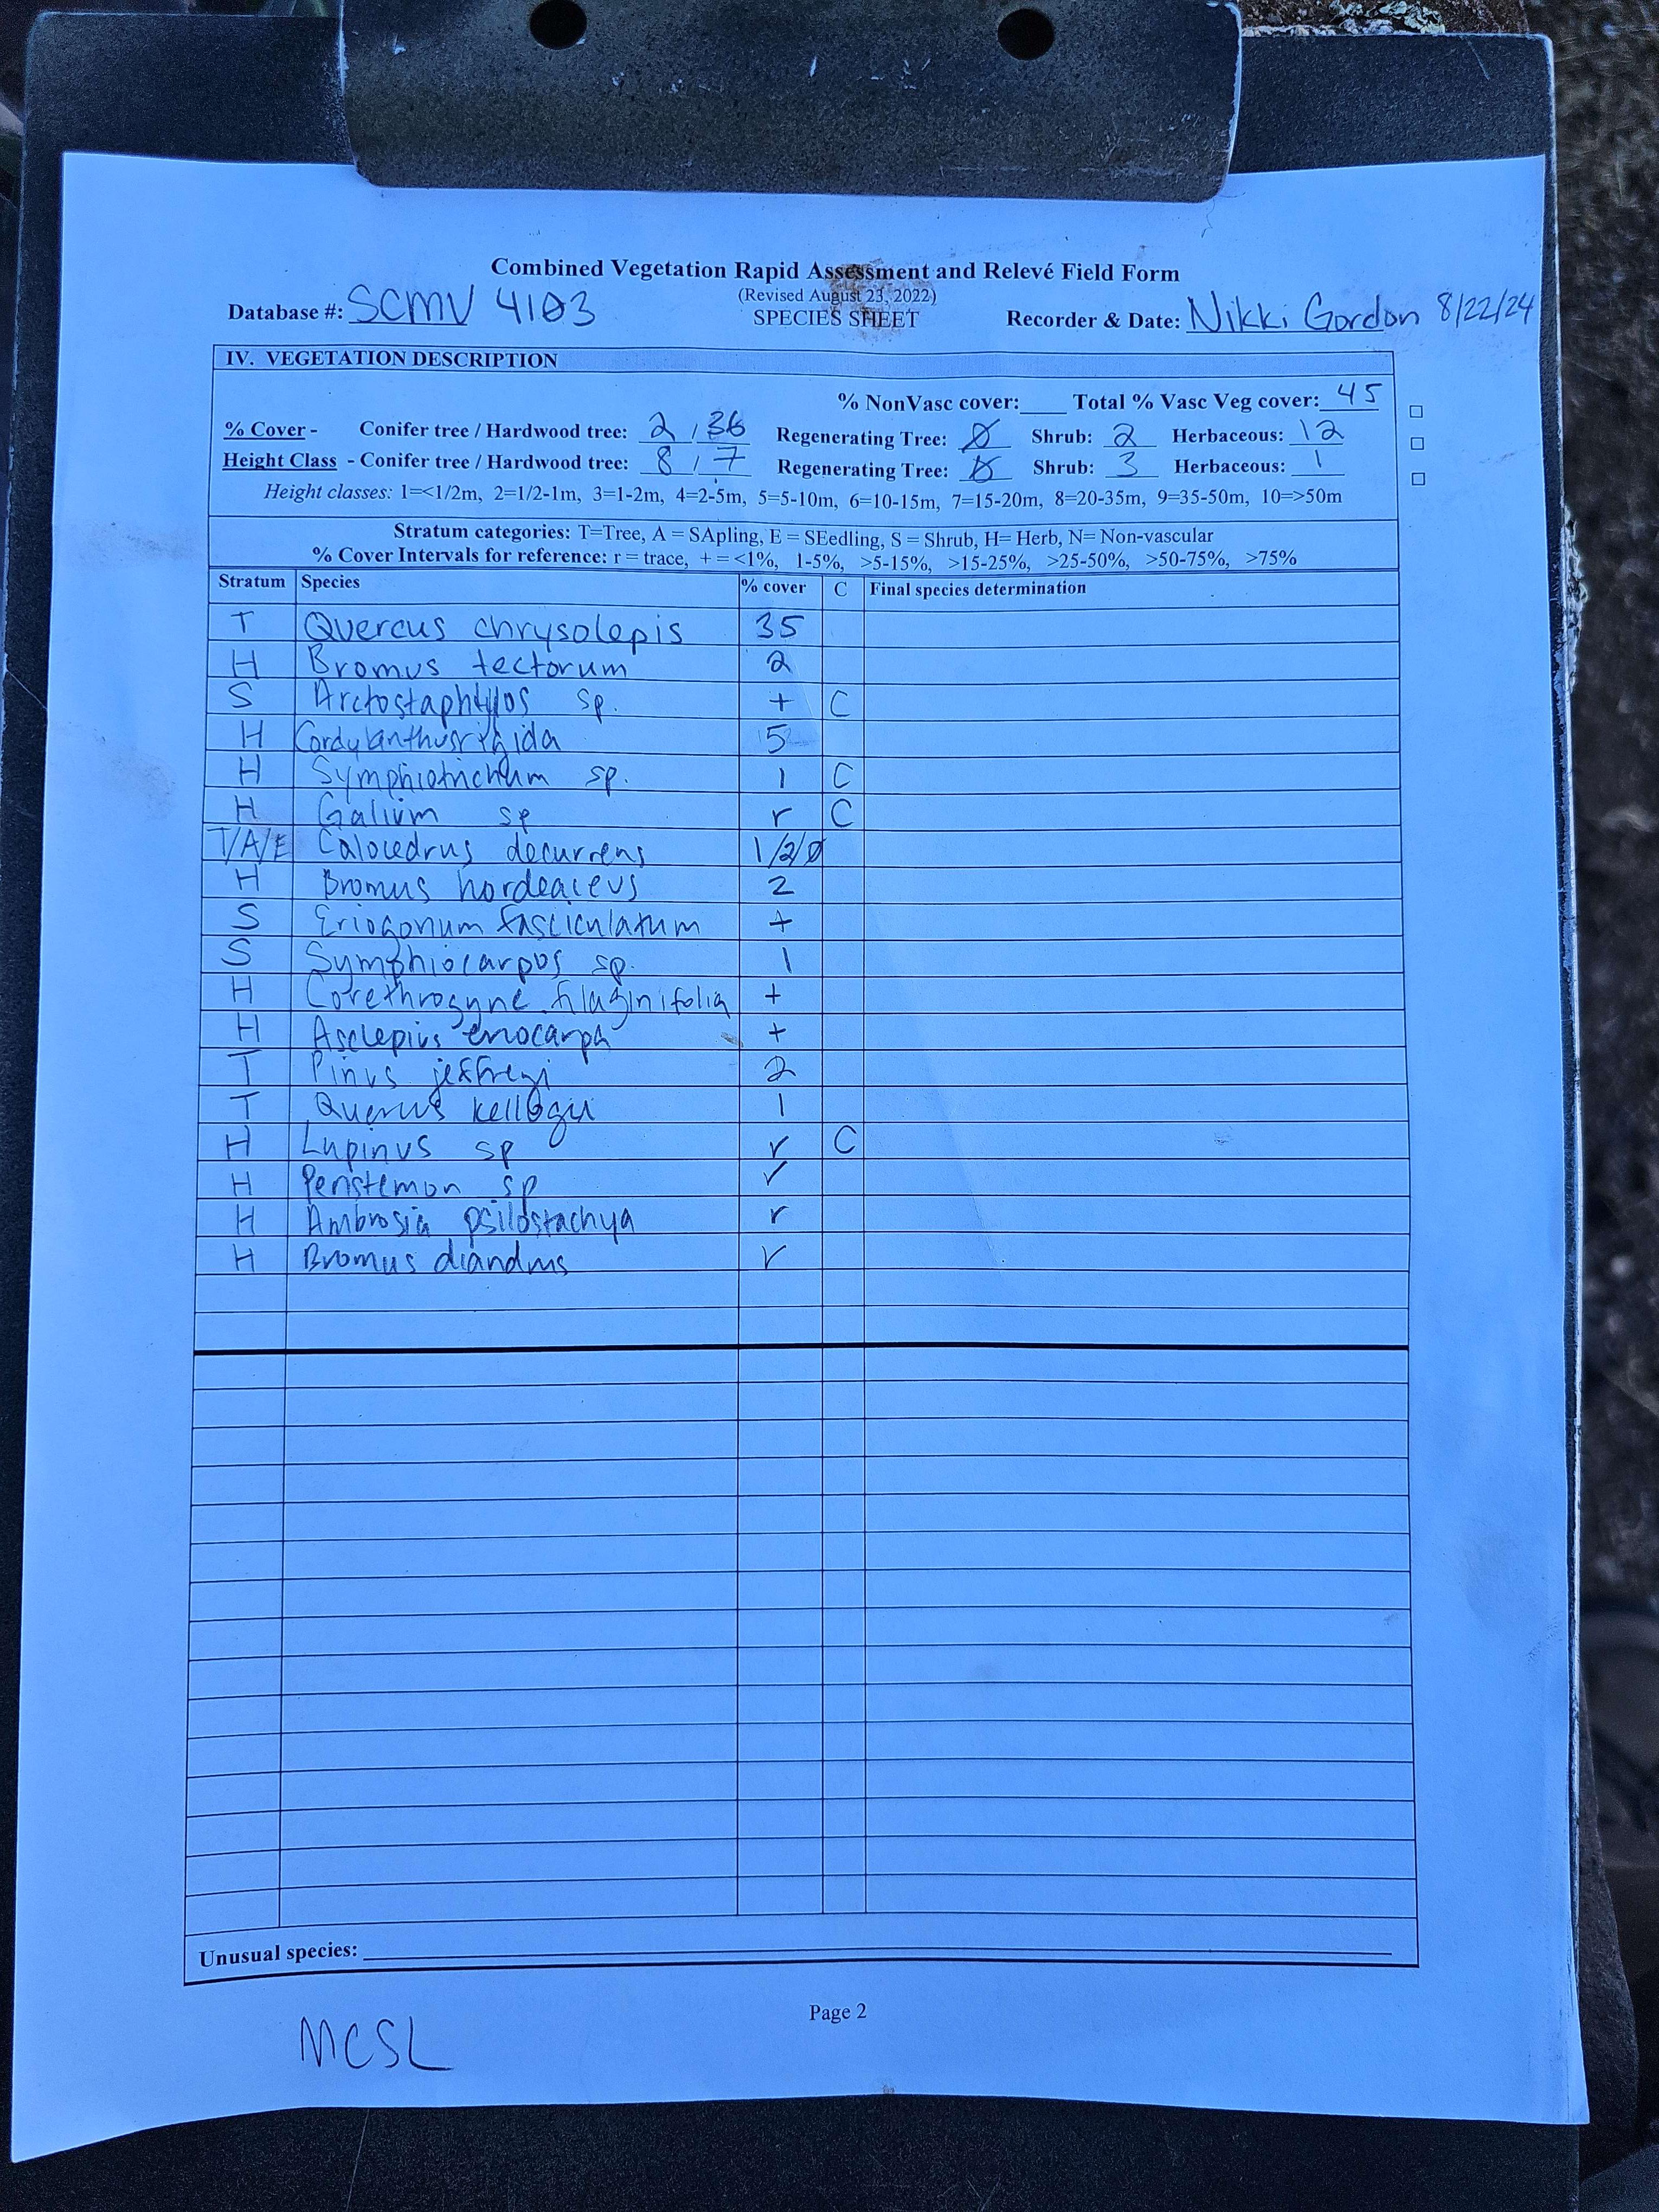 Combined Vegetation Rapid Assessment and Relevé Field Form
(Revised August 23, 2022)
Database #: SCMV 4103 SPECIES SHEET Recorder & Date: Nikki Gordon 8/22/24
IV. VEGETATION DESCRIPTION
% NonVasc cover:____ Total % Vasc Veg cover: 45
% Cover - Conifer tree / Hardwood tree: 2 / 36 Regenerating Tree: Ø Shrub: 2 Herbaceous: 12
Height Class - Conifer tree / Hardwood tree: 8 / 7 Regenerating Tree: Ø Shrub: 3 Herbaceous: 1
Height classes: 1=<1/2m, 2=1/2-1m, 3=1-2m, 4=2-5m, 5=5-10m, 6=10-15m, 7=15-20m, 8=20-35m, 9=35-50m, 10=>50m
Stratum categories: T=Tree, A = SApling, E = SEedling, S = Shrub, H= Herb, N= Non-vascular
% Cover Intervals for reference: r = trace, + = <1%, 1-5%, >5-15%, >15-25%, >25-50%, >50-75%, >75%
Stratum Species % cover C Final species determination
T Quercus chrysolepis 35
H Bromus tectorum 2
S Arctostaphylos sp. + C
H Cordylanthus rigida 5
H Symphiotrichum sp. 1 C
H Galium sp r C
T/A/E Calocedrus decurrens 1/2/Ø
H Bromus hordeaceus 2
S Eriogonum fasciculatum +
S Symphiocarpos sp. 1
H Corethrogyne filaginifolia +
H Asclepius eriocarpa +
T Pinus jeffreyi 2
T Quercus kelloggii 1
H Lupinus sp r C
H Penstemon sp r
H Ambrosia psilostachya r
H Bromus diandrus r
Unusual species:
Page 2
MCSL